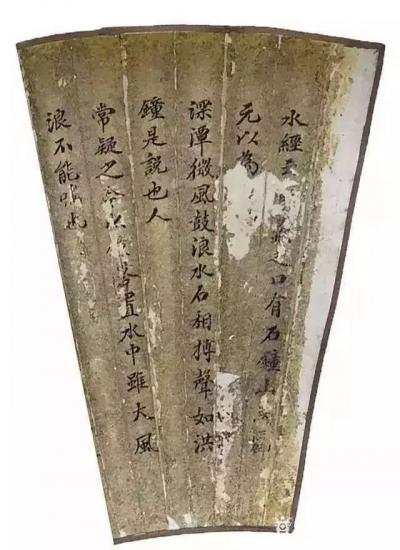 水經云之口有石鐘山
元以為
深潭微風鼓浪水石相搏聲如洪
鐘是説也人
常疑之今以置水中雖大風
浪不能鳴也